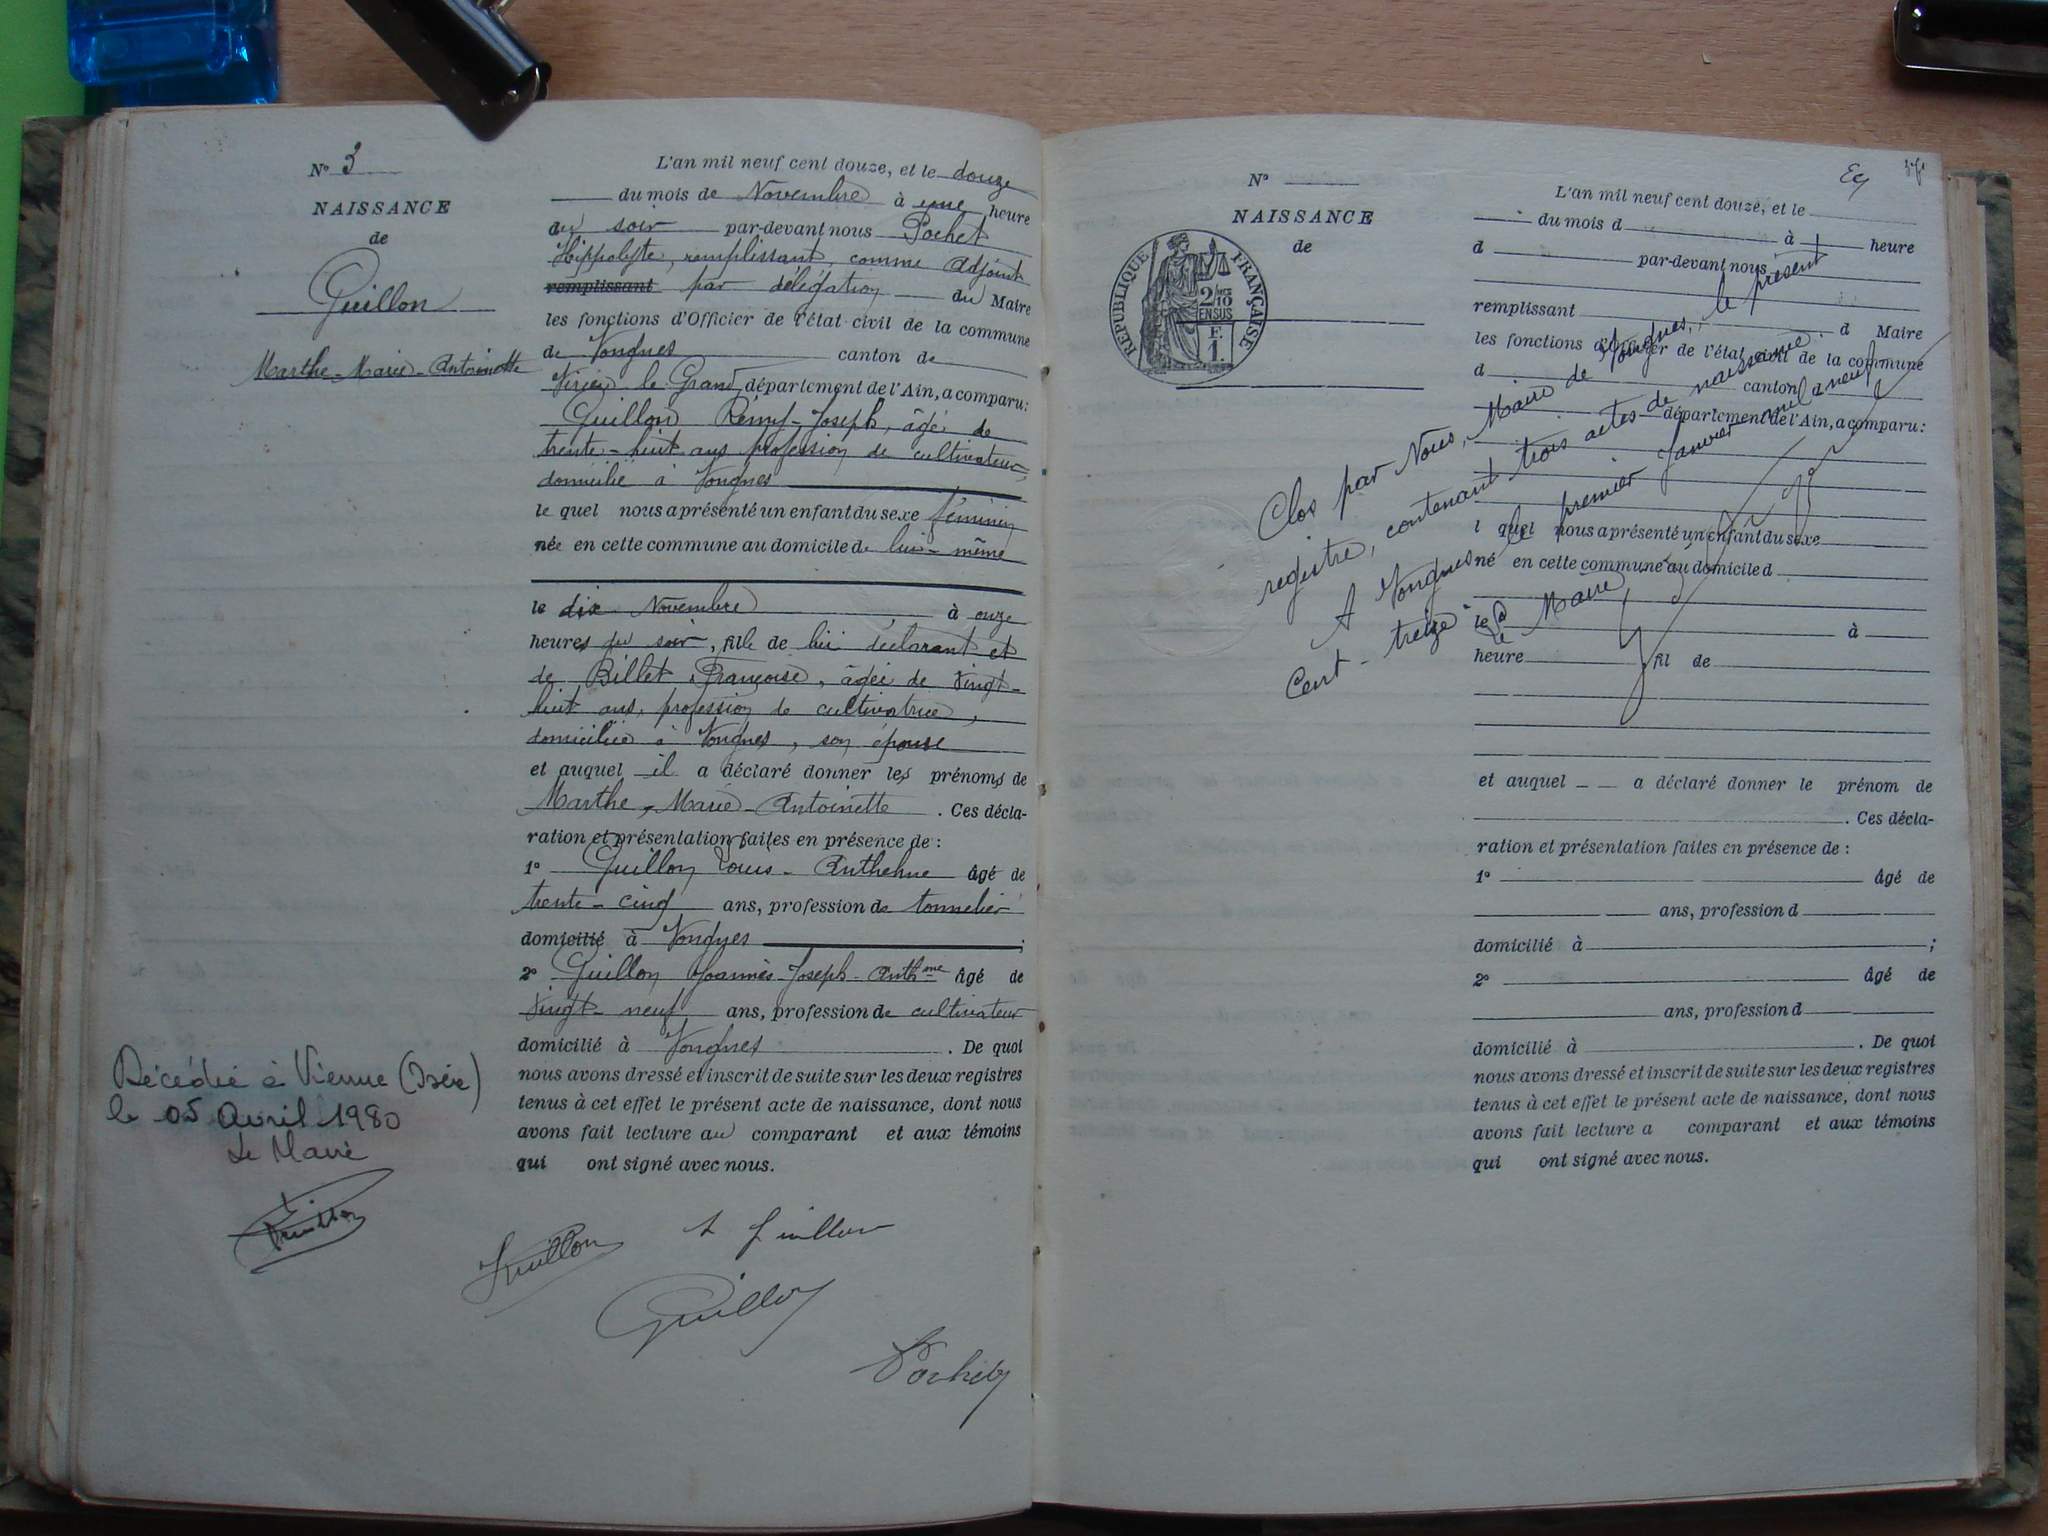 N° 3
NAISSANCE
de
Guillon
Marthe-Marie-Antoinette
L'an mil neuf cent douze, et le douze
du mois de Novembre à une heure
du soir par-devant nous Pochet
Hippolyte, remplissant, comme Adjoint
remplissant par délégation du Maire
les fonctions d'Officier de l'état civil de la commune
de Vongnes canton de
Virieu-le-Grand département de l'Ain, a comparu:
Guillon Rémy-Joseph, âgé de
trente-huit ans profession de cultivateur,
domicilié à Vongnes
le quel nous a présenté un enfant du sexe féminin
née en cette commune au domicile de lui-même
le dix Novembre à onze
heures du soir, fille de lui déclarant et
de Billet Françoise, âgée de vingt-
huit ans, profession de cultivatrice,
domiciliée à Vongnes, son épouse
et auquel il a déclaré donner les prénoms de
Marthe-Marie-Antoinette. Ces décla-
ration et présentation faites en présence de:
1° Guillon Louis-Anthelme âgé de
trente-cinq ans, profession de tonnelier
domicilié à Vongnes;
2° Guillon Joannès-Joseph-Anthme âgé de
vingt-neuf ans, profession de cultivateur
domicilié à Vongnes. De quoi
nous avons dressé et inscrit de suite sur les deux registres
tenus à cet effet le présent acte de naissance, dont nous
avons fait lecture au comparant et aux témoins
qui ont signé avec nous.
Décédée à Vienne (Isère)
le 05 Avril 1980
Le Maire
Guillon
Guillon
A Guillon
Guillon
Pochet
N°
NAISSANCE
de
RÉPUBLIQUE FRANÇAISE
2/10
EN SUS
F.
1.
L'an mil neuf cent douze, et le
du mois d à heure
d par-devant nous
remplissant d Maire
les fonctions d'Officier de l'état civil de la commune
d canton
département de l'Ain, a comparu:
l quel nous a présenté un enfant du sexe
né en cette commune au domicile d
le à
heure fil de
et auquel a déclaré donner le prénom de
. Ces décla-
ration et présentation faites en présence de:
1° âgé de
ans, profession d
domicilié à ;
2° âgé de
ans, profession d
domicilié à . De quoi
nous avons dressé et inscrit de suite sur les deux registres
tenus à cet effet le présent acte de naissance, dont nous
avons fait lecture a comparant et aux témoins
qui ont signé avec nous.
Clos par Nous, Maire de Vongnes, le présent
registre, contenant trois actes de naissance.
A Vongnes le premier Janvier mil neuf
cent-treize
Le Maire